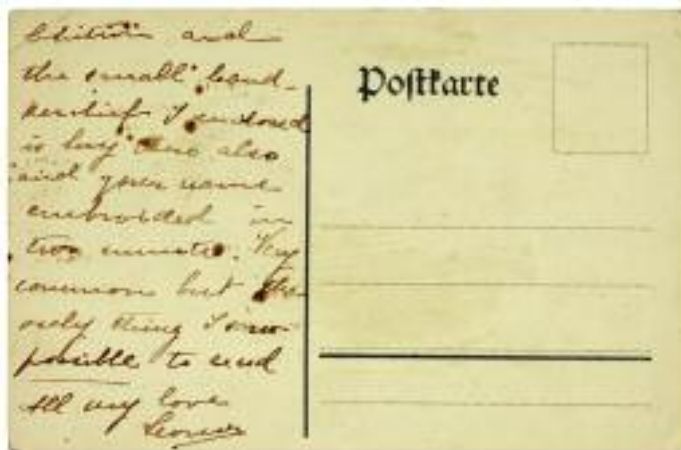 and
the small hand-
kerchief I enclosed
is buy also
and your name
embroided in
two minutes. Very
common but the
only thing I
possible to send
All my love
Postkarte